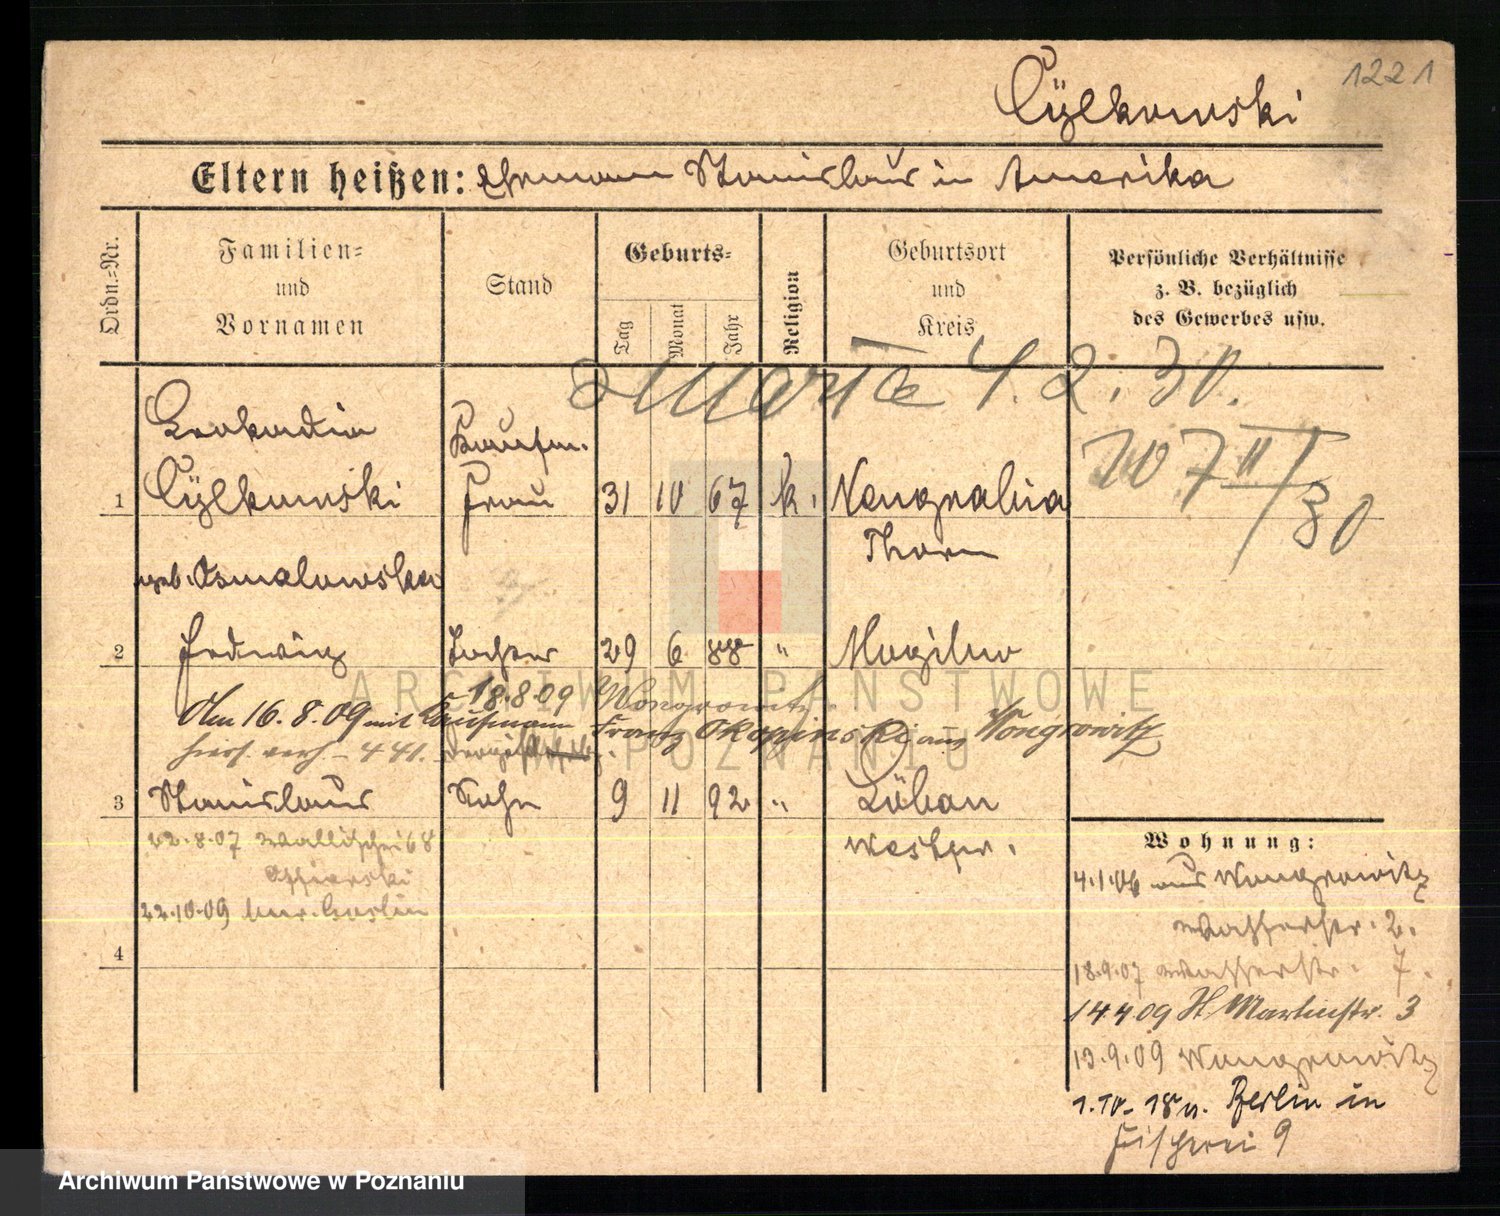 1221
Cÿlkowski
Eltern heißen: Ehemann Stanislaus in Amerika
Ordn.=Nr.
Familien=
und
Vornamen
Stand
Geburts=
Tag
Monat
Jahr
Religion
Geburtsort
und
Kreis
Persönliche Verhältnisse
z. B. bezüglich
des Gewerbes usw.
Maria 4.2.30.
Leokadia
Kaufm.
1 Cÿlkowski Frau 31 10 67 k.
Thorn
geb. Osmalowska
2 Hedwig Tochter 29 6 88 " Mogilno
18.8.09 Wongrowitz
Am 16.8.09 mit Kaufmann Franz Okopinski aus Wongrowitz
hies. verh - 441.
3 Stanislaus Sohn 9 11 92 " Löbau
Westpr.
22.8.07 Wallischei 68
22.10.09 Berlin
4
Wohnung:
4.1.06 aus Wongrowitz
Wasserstr. 2.
18.9.07 Wasserstr. 7.
14 4 09 St Martinstr. 3
13.9.09 Wongrowitz
1.10. v. Berlin in
Fischerei 9
ARCHIWUM PAŃSTWOWE
W POZNANIU
Archiwum Państwowe w Poznaniu